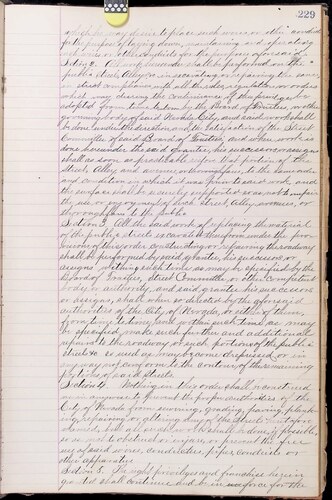 229
which he may desire to place such wires or other conduits
for the purpose of laying down, maintaining and operating
wires or other conduits for the purposes aforesaid.
Section 2. All work hereunder shall be performed on the
public streets, Alleys in excavating or repairing the same,
street in compliance with all the orders rules or orders
which may during the continuance of this franchise be
adopted from time to time by the Board of Trustees, or other
governing body of said Nevada City, and said work shall
be done under the direction and to the satisfaction of the Street
Committee of said Board of Trustees and when work is
done hereunder the said grantee, his successors or assigns
shall as soon as practicable repair that portion of the
street, Alley and avenue, or thoroughfare to the same order
and condition in which it was prior to said work, and
the surface shall be evenly perfected so as not to impair
the use or enjoyment of such street, Alley, avenue, or
thoroughfare to the public
Section 3. All the said work of replacing the material
of the public streets excavated therefrom under the pro-
visions of this order, constructing or repairing the roadway
shall be performed by said grantee, his successors or
assigns within such time as may be specified by the
Board of Trustees, Street Committee or other competent
body or authority, and said grantee his successors
or assigns, shall when so directed by the aforesaid
authorities of the City of Nevada, or either of them,
from time to time, and within such time as may
be specified, make such further and additional
repairs to the roadway or such portions of the public
streets as used as may become depressed or in
any way not conform to the contour of the remaining
portions of said streets.
Section 4. Nothing in this order shall be construed
in any wise to prevent the proper authorities of the
City of Nevada from sewering, grading, paving, plank-
ing, repairing or altering any of the streets out of or
over said, but all such work shall be done, if possible,
so as not to obstruct or injure, or prevent the free
use of said wires, conduits, pipes, conductors or
other apparatus
Section 5. The right, privileges and franchise herein
granted shall continue and be in force for the